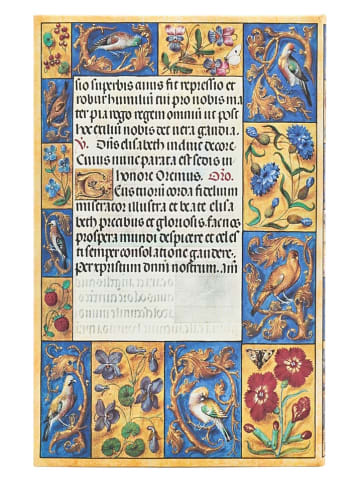 sio superbis cuius fit repressio et
robur humiliū tui pro nobis ma
ter pia rogo regem omniū ut post
hoc exiliū nobis det vera gaudia.
V. Dn̄s elisabeth induit decore
Cuius nunc parata est sedis in
honore Oremus. Oro.
Tuorum corda fidelium
miserator illustra et beate elisa
beth precibus et gloriosis. fac nos
prospera mundi despicere et celes
ti semper consolatione gaudere.
Per xpristum dnm̄ nostrum. am̄